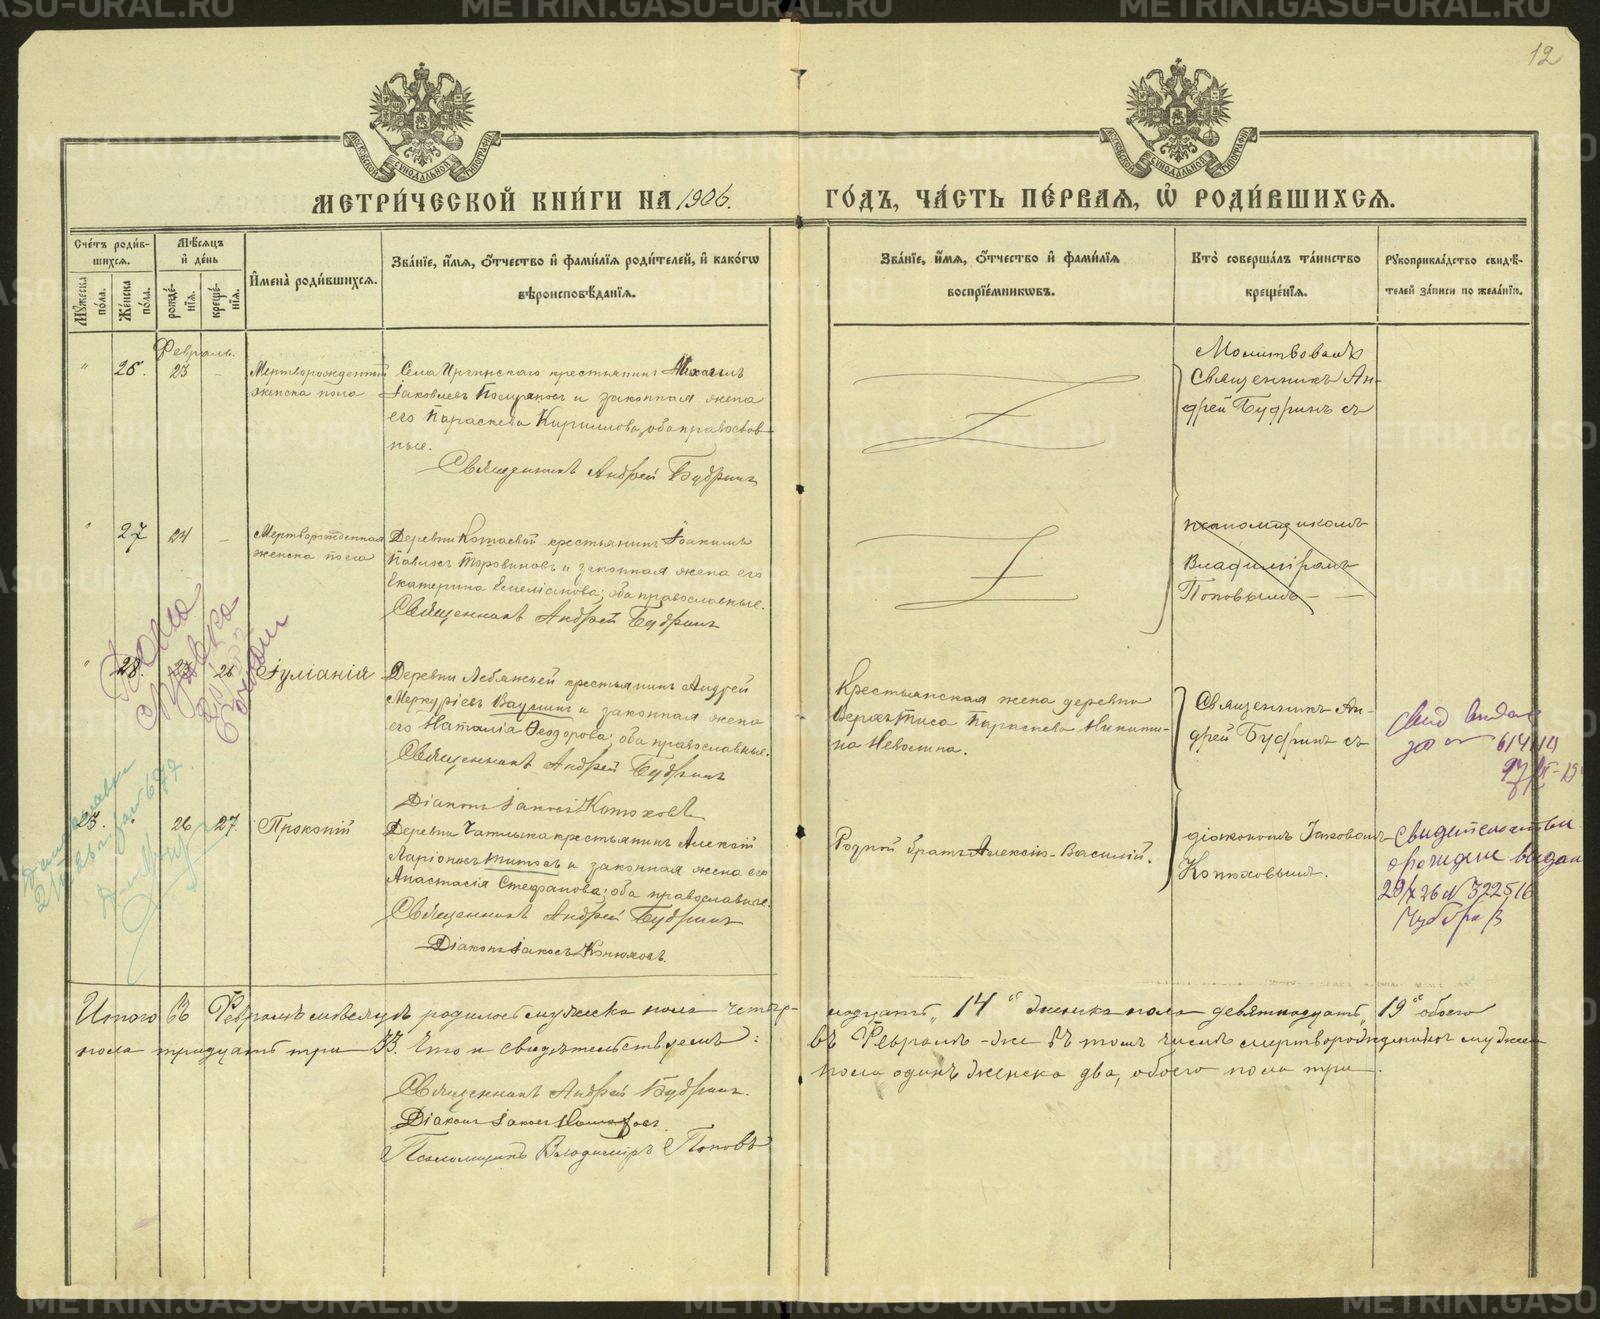 12
МЕТРИ́ЧЕСКОЙ КНИ́ГИ НА 1906.
ГО́ДЪ, ЧА́СТЬ ПЕ́РВАЯ, Ѡ҆ РОДИ́ВШИХСЯ.
Сче́тъ роди́в-
шихся.
Мꙋ́жеска пола.
Же́нска пола.
Мѣ́сяцъ
и҆ де́нь
рожде́-
нїя.
креще́-
нїя.
И҆мена̀ роди́вшихся.
Зва́нїе, и҆́мя, ѻ҆́тчество и҆ фами́лїя роди́телей, и҆ како́гѡ
вѣроисповѣ́данїя.
Зва́нїе, и҆́мя, ѻ҆́тчество и҆ фами́лїя
воспрїе́мникѡвъ.
Кто̀ соверша́лъ та́инство
креще́нїя.
Рꙋкоприкла́дство свидѣ́-
телей за́писи по жела́нїю.
Февраль.
" 26. 23 -
Мертворожденный
женска пола
Села Иргинскаго крестьянинъ Михаилъ
Іаковлевъ и законная жена
его Параскева Кириллова, оба православ-
ные.
Священникъ Андрей Будринъ
Молитвовалъ
Священникъ Ан-
дрей Будринъ съ
" 27 24 -
Мертворожденная
женска пола
Деревни крестьянинъ Іоакимъ
Павловъ и законная жена его
Екатерина Емеліанова, оба православные.
Священникъ Андрей Будринъ
псаломщикомъ
Владиміромъ
Поповымъ
" 28. 25 26
Іуліанія
Деревни Лебяжьей крестьянинъ Андрей
Меркуріевъ Ваулинъ и законная жена
его Наталія Ѳеодорова, оба православные.
Священникъ Андрей Будринъ
Діаконъ Іаковъ Конюховъ
Крестьянская жена деревни
Параскева Никити-
на Невотина.
Священникъ Ан-
дрей Будринъ съ
25. " 26 27.
Прокопій
Деревни Чатлыка крестьянинъ Алексій
Ларіоновъ Титовъ и законная жена его
Анастасія Стефанова; оба православные.
Священникъ Андрей Будринъ
Діаконъ Іаковъ Конюховъ.
Родной братъ Алексія - Василій.
діакономъ Іаковомъ
Конюховымъ.
Итого въ Февралѣ мѣсяцѣ родилось мужеска пола четыр-
надцать „14“ женска пола девятнадцать „19“ обоего
пола тридцать три 33. Что и свидѣтельствуемъ:
въ Февралѣ-же въ томъ числѣ мертворожденныхъ мужеск
пола одинъ женска два, обоего пола три.
Священникъ Андрей Будринъ.
Діаконъ Іаковъ Конюховъ.
Псаломщикъ Владиміръ Поповъ
METRIKI.GASU-URAL.RU